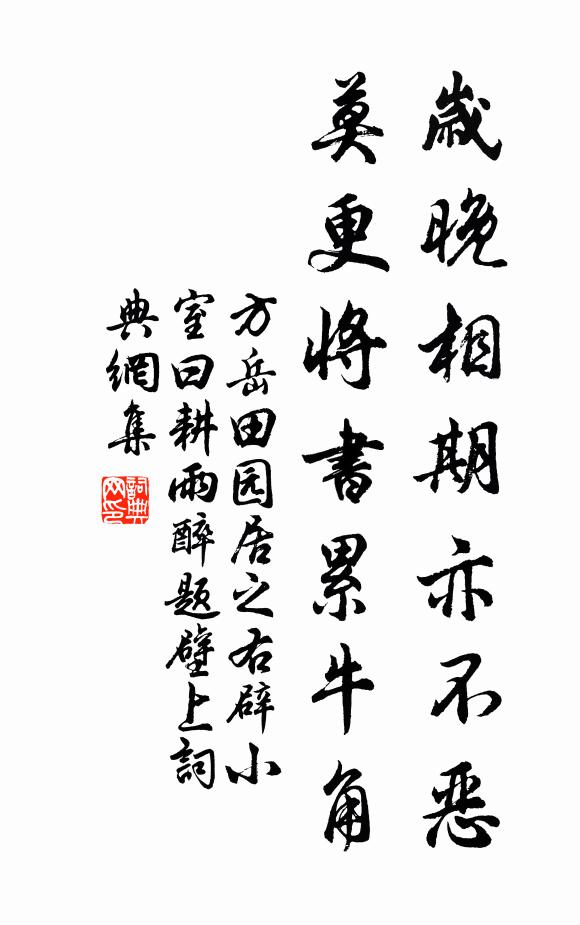 歲晚相期亦不惡
莫更將書累牛角
方岳田园居之右辟小
室曰耕雨醉題壁上詞
典網集
詞典网印